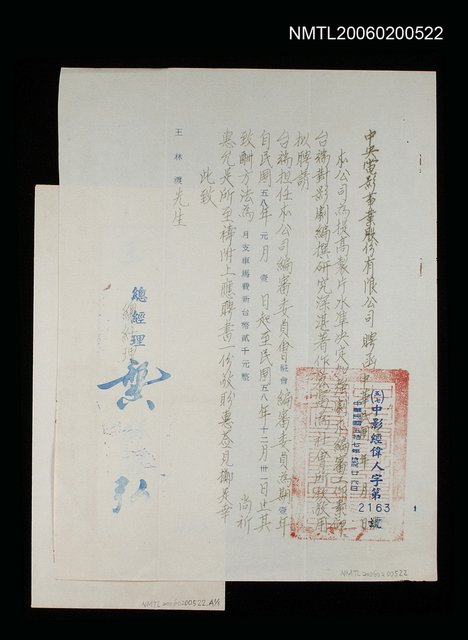 NMTL20060200522
中央電影事業股份有限公司聘函
中華民國 年 月 日
(五八)中影經偉人字第2163號
本公司為提高製片水準決定
台端對影劇編撰研究深湛著作
擬聘請
台端擔任本公司編審委員會駐會編審委員為期壹年
自民國五八年元月壹日起至民國五八年十二月卅一日止其
致酬方法為月支車馬費新台幣貳千元整 尚祈
惠允是所至禱附上應聘書一份敬盼惠簽見擲是幸
此致
王林渡先生
總經理 龔弘
NMTL20060200522
NMTL20060200522.A1/1